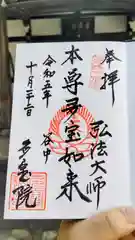 奉拝
弘法大師
本尊多宝如来
谷中
多宝院
令和五年
十月二十二日